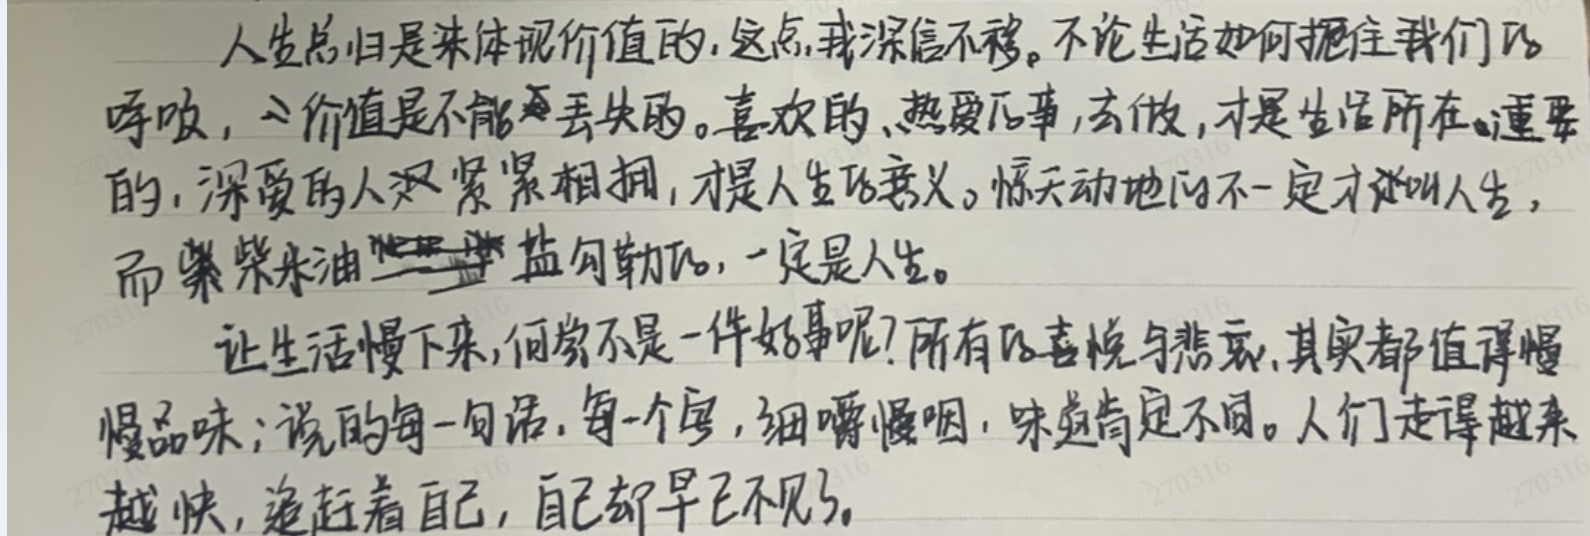 人生总归是来体现价值的，这点，我深信不移。不论生活如何扼住我们的
呼吸，价值是不能丢失的。喜欢的、热爱的事，去做，才是生活所在。重要
的，深爱的人，紧紧相拥，才是人生的意义。惊天动地的不一定才叫人生，
而柴米油盐勾勒的，一定是人生。
让生活慢下来，何尝不是一件好事呢？所有的喜悦与悲哀，其实都值得慢
慢品味；说的每一句话，每一个字，细嚼慢咽，味道肯定不同。人们走得越来
越快，追赶着自己，自己却早已不见了。
270316